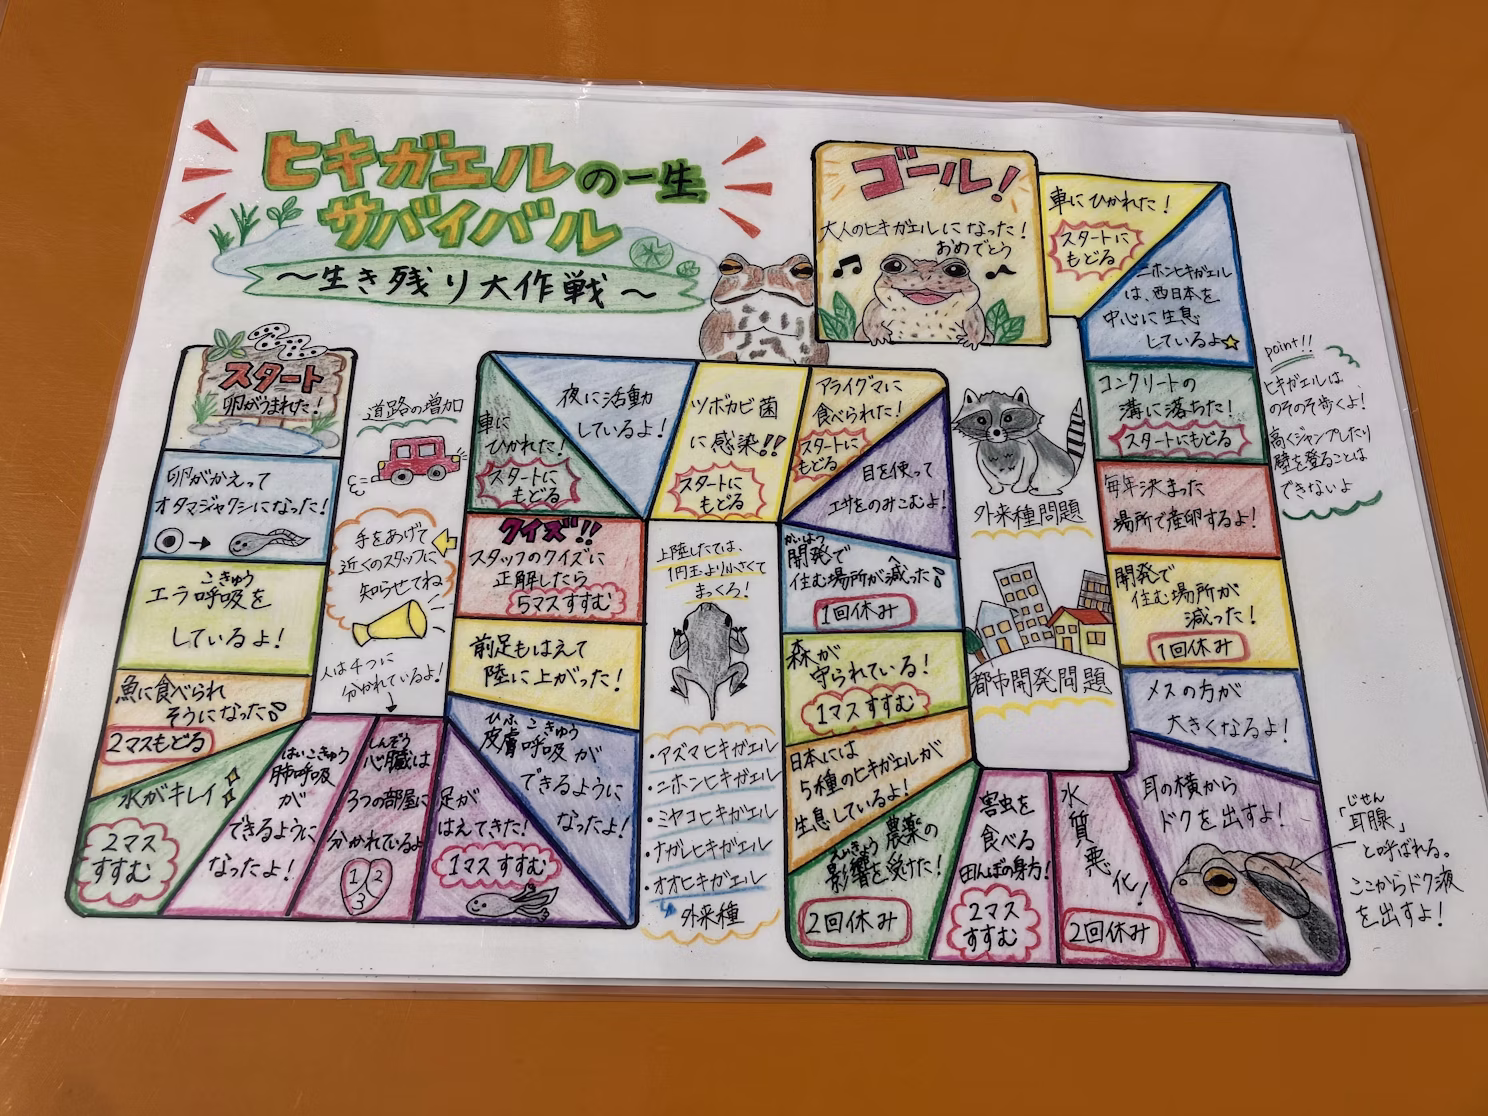 ヒキガエルの一生
サバイバル
～生き残り大作戦～
スタート
卵がうまれた！
卵がかえって
オタマジャクシになった！
こきゅう
エラ呼吸を
しているよ！
魚に食べられ
そうになった
2マスもどる
水がキレイ
2マス
すすむ
はいこきゅう
肺呼吸
が
できるように
なったよ！
しんぞう
心臓は
3つの部屋に
分かれているよ
1
2
3
足が
はえてきた！
1マスすすむ
ひふこきゅう
皮膚呼吸が
できるように
なったよ！
前足もはえて
陸に上がった！
クイズ！！
スタッフのクイズに
正解したら
5マスすすむ
車に
ひかれた！
スタートに
もどる
夜に活動
しているよ！
ツボカビ菌
に感染！！
スタートに
もどる
アライグマに
食べられた！
スタートに
もどる
目を使って
エサをのみこむよ！
かいはつ
開発で
住む場所が減った
1回休み
森が
守られている！
1マスすすむ
日本には
5種のヒキガエルが
生息しているよ！
農薬の
えいきょう
影響を受けた！
2回休み
害虫を
食べる
田んぼの身方！
2マス
すすむ
水質悪化！
2回休み
耳の横から
ドクを出すよ！
メスの方が
大きくなるよ！
開発で
住む場所が
減った！
1回休み
毎年決まった
場所で産卵するよ！
コンクリートの
溝に落ちた！
スタートにもどる
ニホンヒキガエル
は、西日本を
中心に生息
しているよ☆
車にひかれた！
スタートに
もどる
ゴール！
大人のヒキガエルになった！
おめでとう
道路の増加
手をあげて
近くのスタッフに
知らせてね
人は4つに
分かれているよ！
上陸したては、
1円玉より小さくて
まっくろ！
・アズマヒキガエル
・ニホンヒキガエル
・ミヤコヒキガエル
・ナガレヒキガエル
・オオヒキガエル
外来種
外来種問題
都市開発問題
point!!
ヒキガエルは
のそのそ歩くよ！
高くジャンプしたり
壁を登ることは
できないよ
じせん
「耳腺」
と呼ばれる。
ここからドク液
を出すよ！